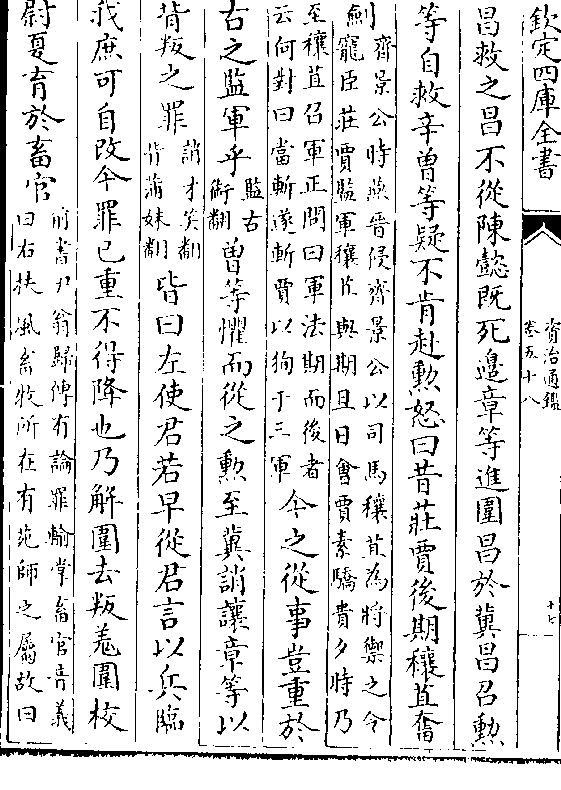 欽定四庫全書
資治通鑑
卷五十八
十七
昌救之昌不從陳懿既死邊章等進圍昌於冀昌召勲
等自救辛曾等疑不肯赴勲怒曰昔莊賈後期穰苴奮
劍齊景公時燕晉侵齊景公以司馬穰苴為將禦之令
寵臣莊賈監軍穰苴與期旦日會賈素驕貴夕時乃
至穰苴召軍正問曰軍法期而後者
云何對曰當斬遂斬賈以狥于三軍今之從事豈重於
古之監軍乎監古
銜翻曾等懼而從之勲至冀誚讓章等以
背叛之罪誚才笑翻
背蒲妹翻皆曰左使君若早從君言以兵臨
我庶可自改今罪已重不得降也乃解圍去叛羗圍校
尉夏育於畜官前書尹翁歸傳有論罪輸掌畜官音義
曰右扶風畜牧所在有苑師之屬故曰